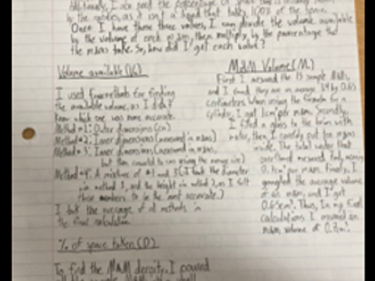 Additionally, I also need the percentage of space that is actually taken
by the candies, as it isn't a liquid that takes 100% of the space.
Once I have these three values, I can divide the volume available
by the volume of each m&m, then multiply by the percentage that
the m&ms take. So, how did I get each value?
Volume available (VG)
I used four methods for finding
the available volume, as I didn't
know which one was more accurate.
Method #1: Outer dimensions (cm)
Method #2: Inner dimensions (measured in m&ms)
Method #3: Inner dimensions (measured in m&ms,
but then converted to cm using the average size)
Method #4: A mixture of #1 and 3 (I took the diameter
in method 3, and the height in method 2, as I felt
those numbers to be the most accurate.)
I took the average of all methods in
the final calculation
% of space taken (D)
To find the M&M density, I poured
M&M Volume (M)
First I measured the 15 sample M&Ms,
and I found they are on average 1.4 by 0.65
centimeters. When using the formula for a
cylinder, I got 1cm³ per m&m. Secondly,
I filled a glass to the brim with
water, then I carefully put five m&ms
inside. The total water that
overflowed measured
0.7cm³ per m&m. Finally, I
googled the average volume
of an m&m, and I got
0.63cm³. Thus, in my final
calculations I assumed an
m&m volume of 0.7cm³.